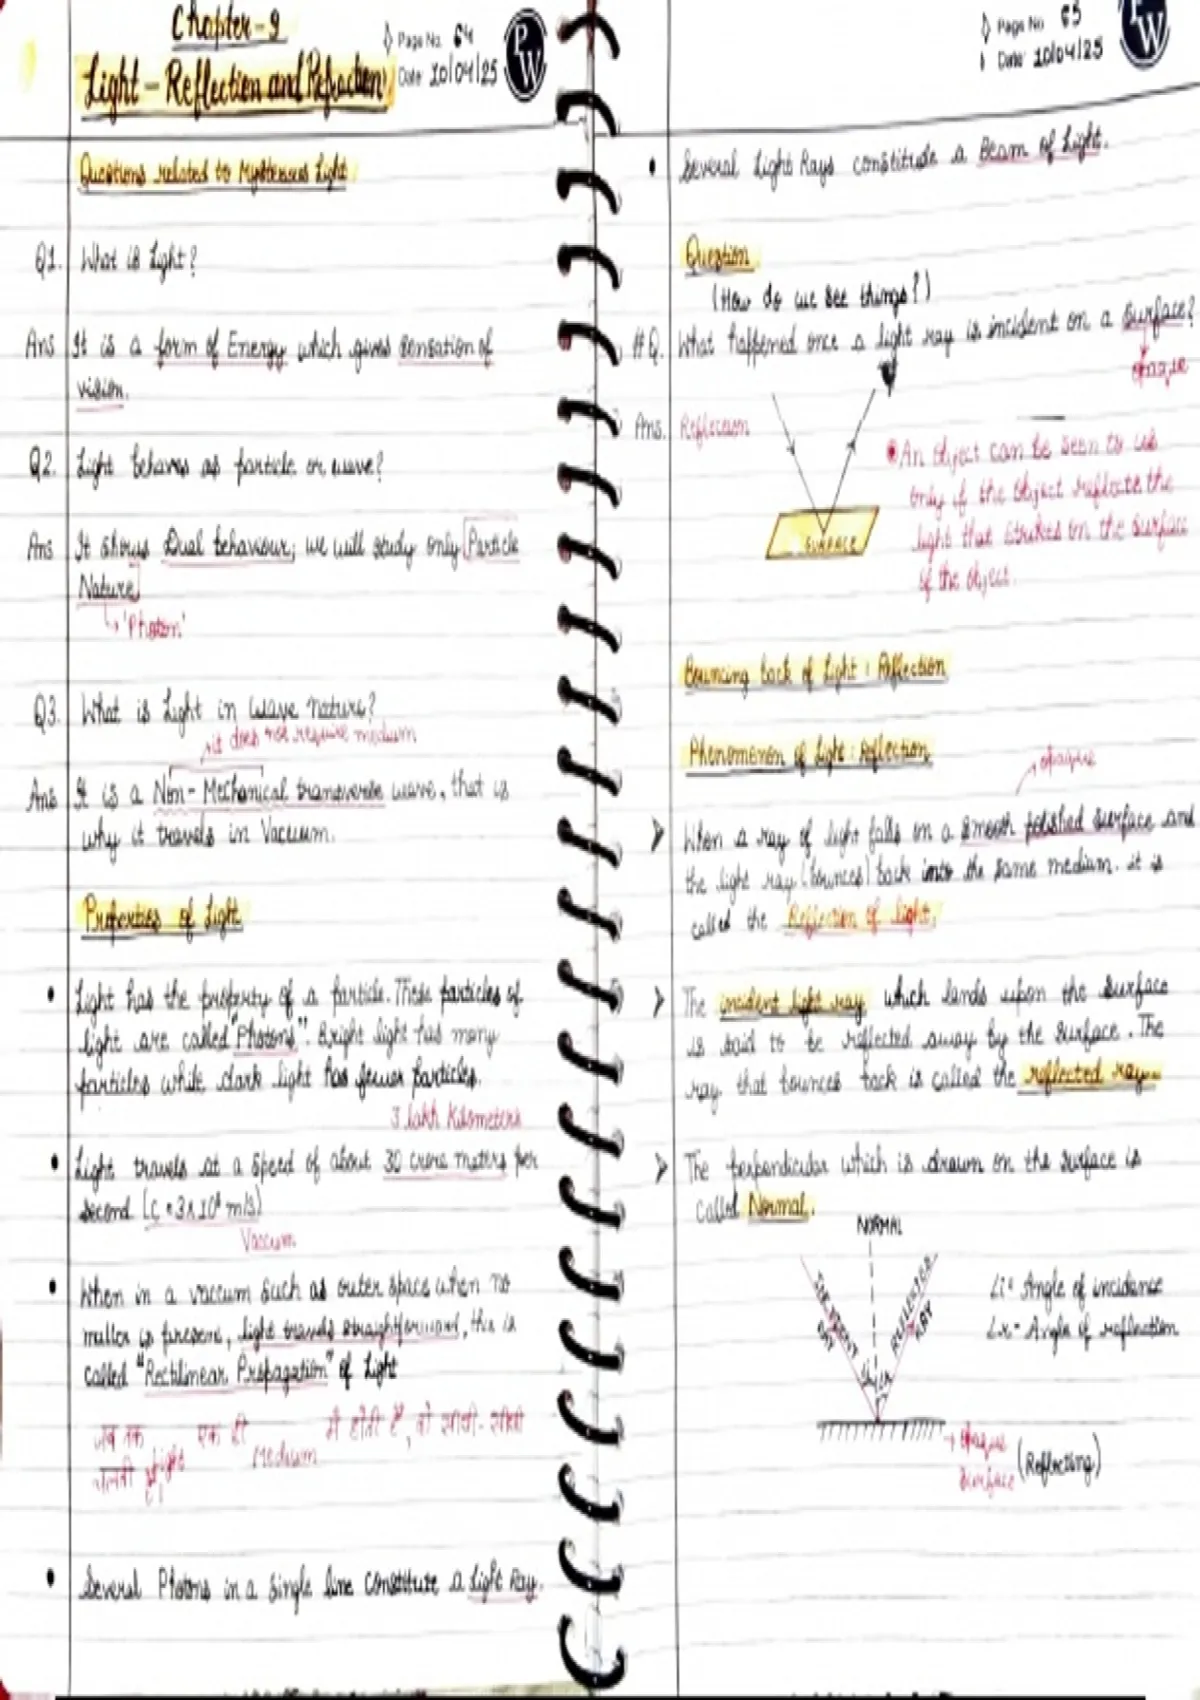 Chapter-9
Page No. 64
Date 10/04/25
PW
Light - Reflection and Refraction
Questions related to Mysterious Light
Q1. What is Light?
Ans It is a form of Energy which gives sensation of
vision.
Q2. Light behaves as particle or wave?
Ans It shows Dual behaviour; we will study only Particle
Nature
→ 'Photon'
Q3. What is Light in wave nature?
it does not require medium
Ans It is a Non-Mechanical transverse wave, that is
why it travels in Vacuum.
Properties of Light
• Light has the property of a particle. These particles of
light are called "Photons". Bright light has many
particles while dark light has fewer particles.
3 lakh Kilometers
• Light travels at a speed of about 30 crore meters per
second (c = 3 x 10⁸ m/s)
Vaccum
• When in a vaccum such as outer space when no
matter is present, light travels straightforward, this is
called "Rectilinear Propagation" of Light
जब तक light एक ही Medium में होती है, वो सीधी-सीधी
चलती है
• Several Photons in a single line constitute a Light Ray.
Page No
Date 10/04/25
PW
• Several Light Rays constitute a Beam of Light.
Question
(How do we see things?)
#Q. What happened once a light ray is incident on a surface?
opaque
Ans. Reflection
SURFACE
• An Object can be seen to us
only if the Object reflects the
light that strikes on the surface
of the object.
Bouncing back of Light : Reflection
Phenomenon of Light : Reflection
opaque
➤ When a ray of light falls on a smooth polished surface and
the light ray (bounces) back into the same medium. it is
called the Reflection of light.
➤ The incident light ray which lands upon the surface
is said to be reflected away by the surface. The
ray that bounces back is called the reflected ray.
➤ The perpendicular which is drawn on the surface is
called Normal.
NORMAL
INCIDENT RAY
REFLECTED RAY
∠i = Angle of incidence
∠r = Angle of reflection
→ Opaque
Surface (Reflecting)